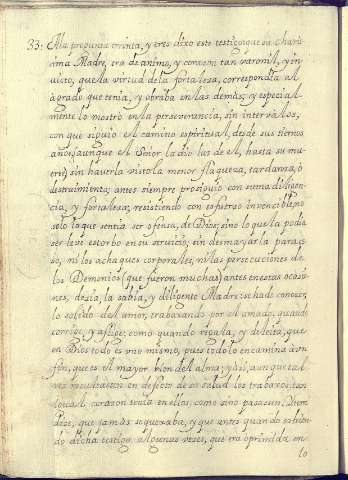 33: A la pregunta treinta, y tres dixo este testigo que su Charis-
sima Madre, era de animo, y corazon tan varonil, y in-
victo, que la virtud de la fortaleza, correspondia al
agrado que tenia, y obraba en las demas; y especial-
mente lo mostro en la perseverancia, sin intervalos,
con que siguio el camino espiritual, desde sus tiernos
años (aunque el Señor la dio luz de el, hasta su mu-
erte) sin haverla visto la menor flaqueza, tardanza, ò
destruimiento; antes siempre prosiguio con suma diligen-
cia, y fortaleza; resistiendo con esfuerzo invencible no
solo lo que sentia ser ofensa, de Dios, sino lo que la podia
ser leve estorbo en su servicio; sin desmayarla para es-
so, ni los achaques corporales, ni las persecuciones de
los Demonios (que fueron muchas) antes en estas ocasio-
nes, desia, la sabia, y diligente Madre: se ha de conocer,
lo solido del amor, trabaxando por el Amado, quando
corrige, y aflige, como quando regala, y deleita, que
en Dios todo es uno mismo, pues todo lo encamina à un
fin, que es el mayor bien del alma; y assi, aunque al
vez resultassen en defecto de su salud los trabaxos, tan
igual corazon tenia en ellos, como sino passasen. Item
dixo, que jamas se quexaba, y que antes quando sabien-
do dicha testigo algunas veses, que era oprimida en
lo